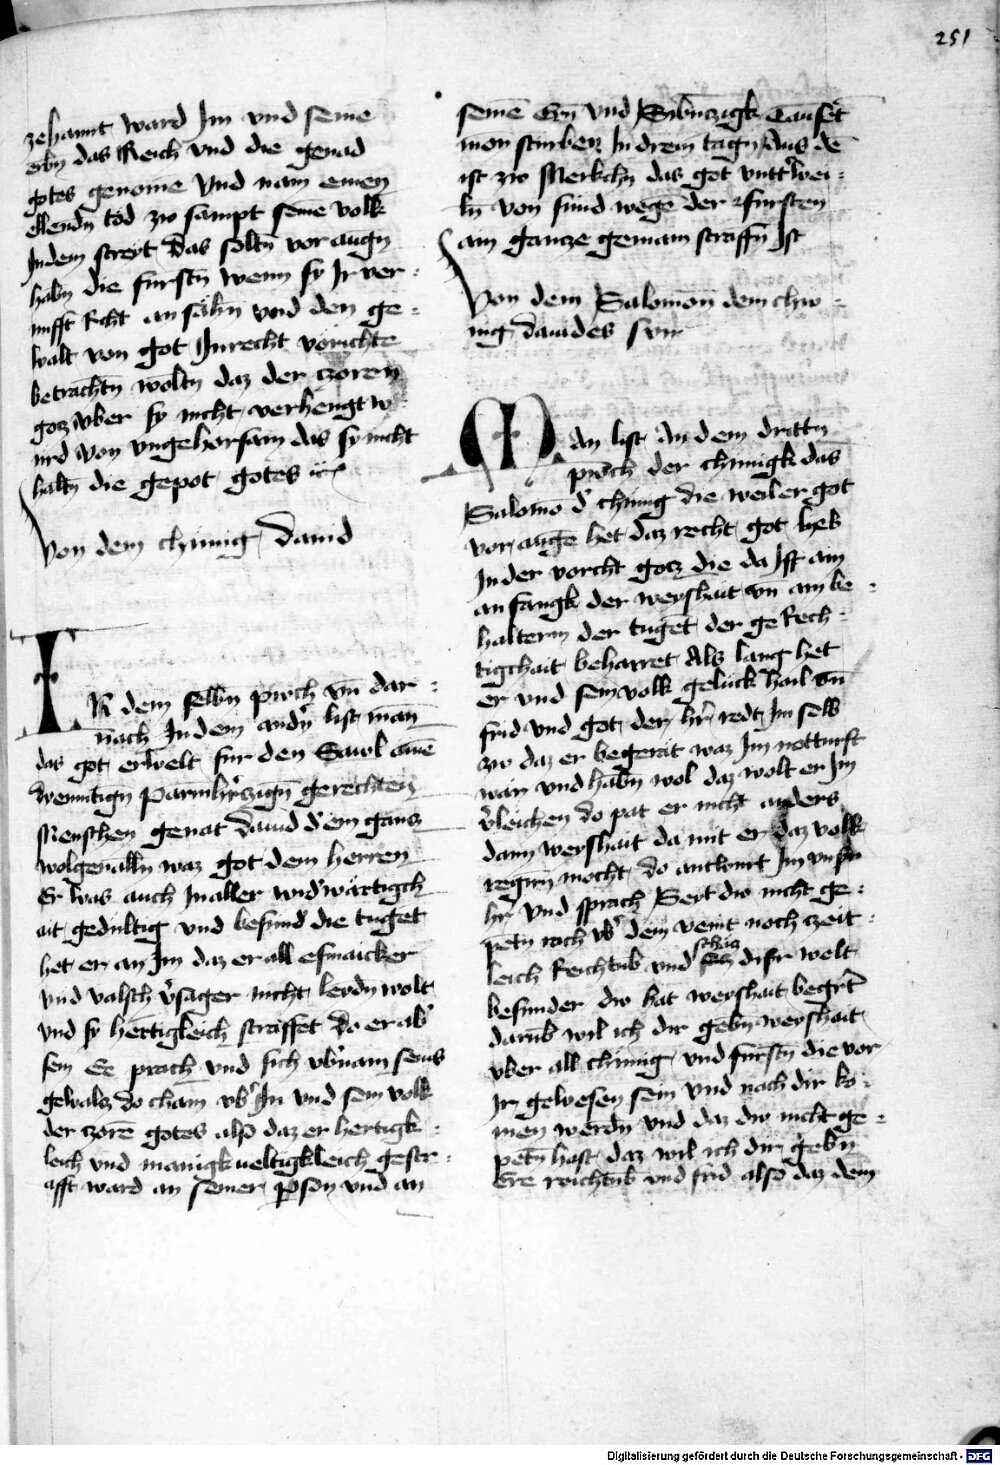 251
zehannt ward Im vnd seine
erbn das Reich vnd die genad
gotes genome vnd nam einen
ellendn tod zw sampt seine volk
Indem streyt das soltn vor augn
habn die furstn wenn sy Ir ver-
nufft Recht an sahn vnd den ge-
walt von got Inrecht vorichte
betrachtn woltn daz der zoren
gocz vber sy nicht verhengt w
urd von vngehorsam das sy nicht
haltn die gepot gotes
Von dem chunig dauid
IN dem selbn puoch vn dar-
nach Indem andn list man
das got erwelt fur den Sawl aine
diemutign parmherczign gerechten
Menschen genat dauid dem gancz
wolgenalln waz got dem herren
Er was auch Inaller widwartigch
ait gedultig vnd besund die tuget
het er an Im daz er all esmaicker
vnd valsch vsager nicht leydn wolt
vnd sy hertigleich straffet do er ab
sein Ee prach vnd sich vbnam seins
gewalcz do cham vb In vnd sein volk
der zore gotes also daz er hertigk-
leich vnd manigkueltigkleich gestr-
afft ward an seiner pson vnd an
seine Sun vnd Sibnczigk Tauset
man sturben In drein tagn Aus de
ist zw Merkchn das got vnttwei-
ln von sund wegn der fursten
am gancze gemain straffn Ist
Von dem Salomon dem chu-
nig dauides sun
Man list An dem drittn
puoch der chunigk das
Salomo d chunig die weil er got
vor auge het daz recht got lieb
In der vorcht gocz die da Ist am
anfangk der weyshait vn am be-
halterin der tuget der geRech-
tigchait beharret Als lang het
er vnd sein volk geluck hail vn
frid vnd got der hr redt Im selb
zw daz er begerat waz Im notturft
war vnd habn wol daz wolt er Im
vleichen do pat er nicht anders
dann weyshait da mit er daz volk
regirn mocht do antwurt Im vnser
hr vnd sprach Seyt dw nicht ge-
petn nach vb dein veint noch zeit-
leich Reichtub vnd schacz diser welt
besunder dw hat weyshait begert
darub wil ich dir gebn weyshait
vber all chunig vnd furstn die vor
Ir gewesen sein vnd nach dir ko-
men werdn vnd daz dw nicht ge-
petn hast daz wil ich dir gebn
Ere reichtub vnd frid also daz dem
Digitalisierung gefördert durch die Deutsche Forschungsgemeinschaft - DFG